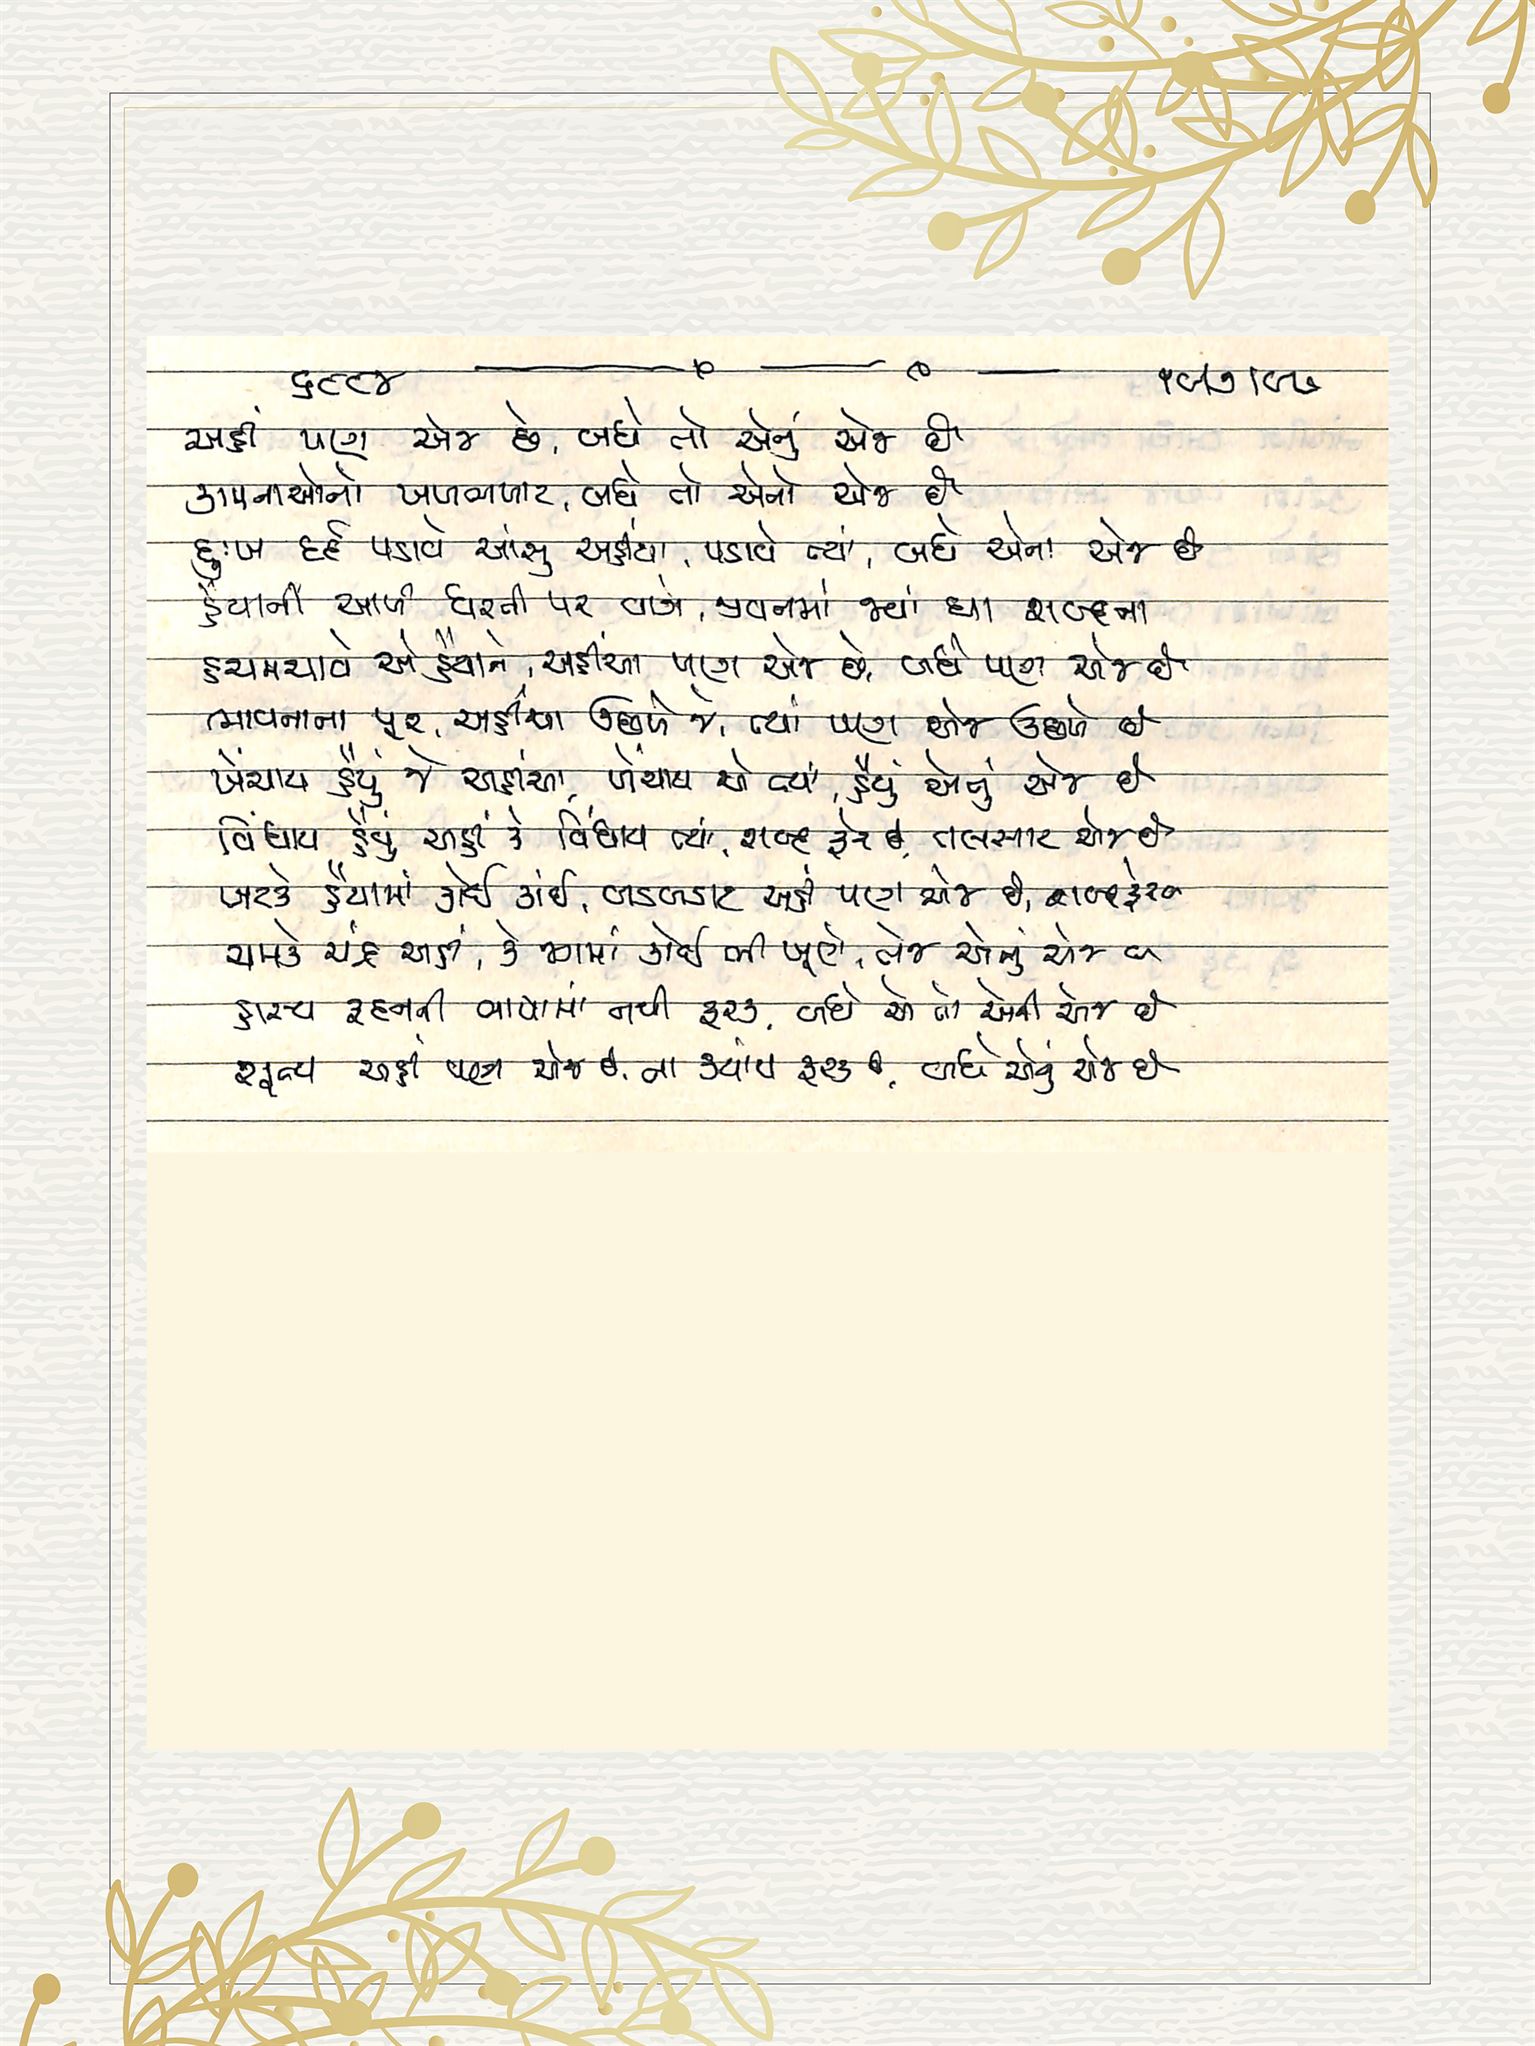 ૬૯૯૪
અહીં પણ એજ છે, બધે તો એનું એજ છે
ભાવનાઓનો ખળભળાટ, બધે તો એનો એજ છે
દુઃખ દર્દ પડાવે આંસુ અહીંયા, પડાવે ત્યાં, બધે એના એજ છે
હૈયાની આળી ધરતી પર વાગે, જીવનમાં જ્યાં ઘા શબ્દના
હચમચાવે એ હૈયાને, અહીંયા પણ એજ છે, બધે પણ એજ છે
ભાવનાના પૂર, અહીંયા ઉછળે જે, ત્યાં પણ એજ ઉછળે છે
ખેંચાય હૈયું જે અહીંયા, ખેંચાય એ ત્યાં, હૈયું એનું એજ છે
વિંધાય હૈયું અહીં કે વિંધાય ત્યાં, શબ્દ ફેર છે, તલસાટ એજ છે
ખટકે હૈયામાં કોઈ કાંઈ, બડબડાટ અહીં પણ એજ છે, શબ્દફેર છે
ચમકે ચંદ્ર અહીં, કે જગમાં કોઈ ભી ખૂણે, તેજ એનું એજ છે
હાસ્ય રૂદનની ભાષામાં નથી ફરક, બધે એ તો એની એજ છે
શૂન્ય અહીં પણ એજ છે, ના ક્યાંય ફરક છે, બધે એનું એજ છે